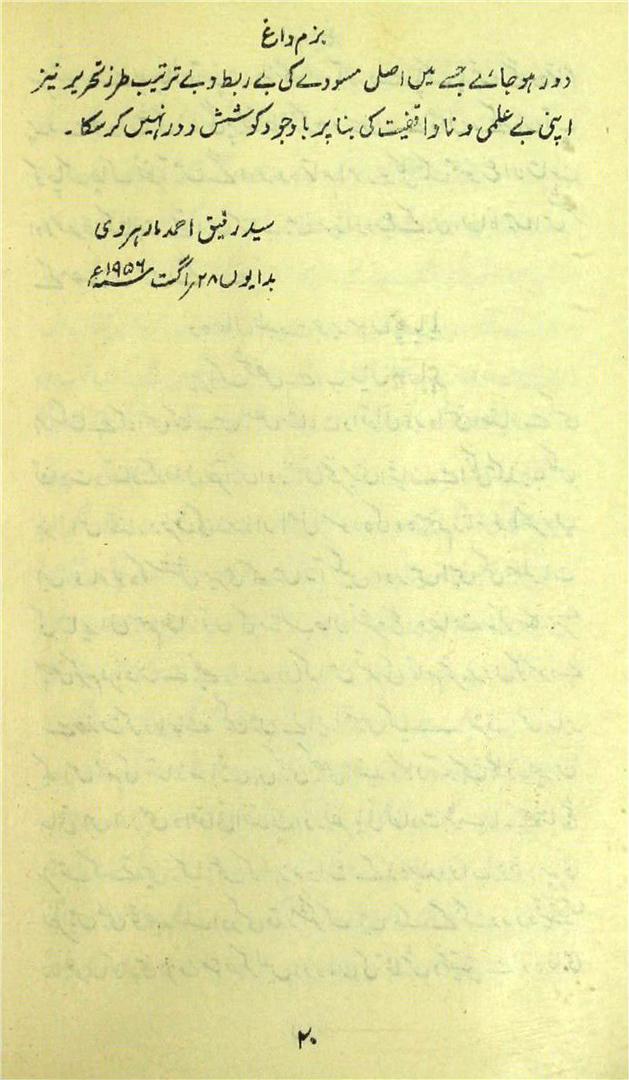 بزم داغ
دور ہو جائے جسے میں اصل مسودے کی بے ربط و بے ترتیب طرز تحریر نیز
اپنی بے علمی و ناواقفیت کی بنا پر باوجود کوشش دور نہیں کر سکا۔
سید رفیق احمد مارہروی
بدایوں ۲۸ اگست ۱۹۵۶ء
۲۰